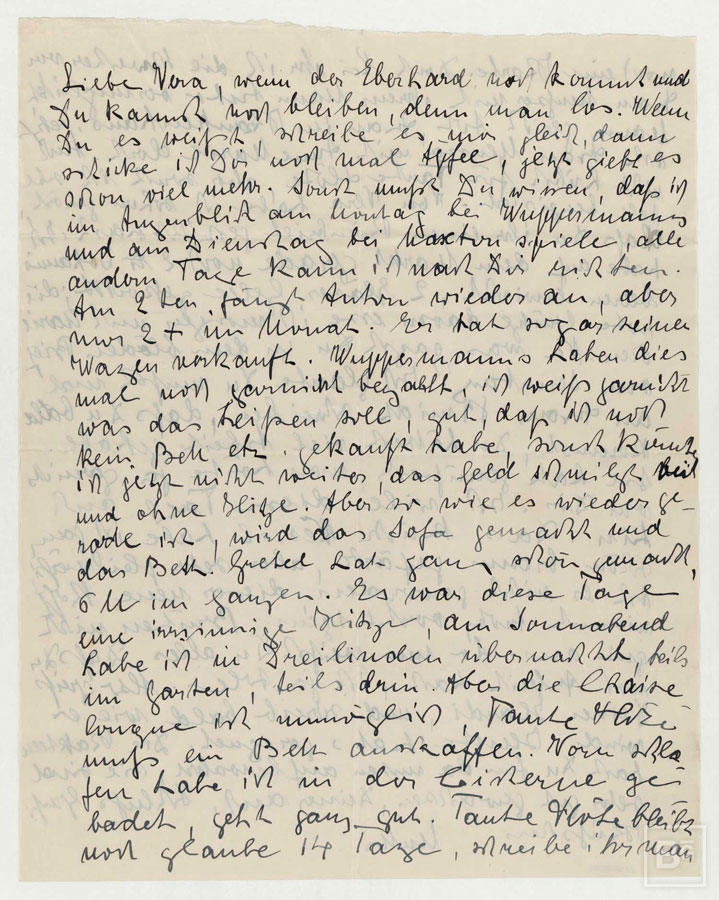 Liebe Vera, wenn der Eberhard noch kommt und
Du kannst noch bleiben, denn man los. Wenn
Du es weißt, schreibe es mir gleich, dann
schicke ich Dir noch mal Äpfel, jetzt giebt es
schon viel mehr. Sonst mußt Du wissen, daß ich
im Augenblick am Montag bei Wuppermanns
und am Dienstag bei spiele, alle
andern Tage kann ich nach Dir richten.
Am 2ten fängt Anton wieder an, aber
nur 2 + im Monat. Er hat sogar seinen
Wagen verkauft. Wuppermanns haben dies
mal noch garnicht bezahlt, ich weiß garnicht
was das heißen soll, gut, daß ich noch
kein Bett etc. gekauft habe, sonst könnte
ich jetzt nicht weiter, das Geld schmilzt mit
und ohne Hitze. Aber so wie es wieder ge-
rade ist, wird das Sofa gemacht und
das Bett. Gretel hat ganz schön gemacht,
6 M im ganzen. Es war diese Tage
eine irrsinnige Hitze, am Sonnabend
habe ich in Dreilinden übernachtet, teils
im Garten, teils drin. Aber die Chaise
longue ist unmöglich, Tante
muß ein Bett anschaffen. Vorm schla
fen habe ich in der Cisterne ge
badet, geht ganz gut. Tante bleibt
noch glaube 14 Tage, schreibe ihr man